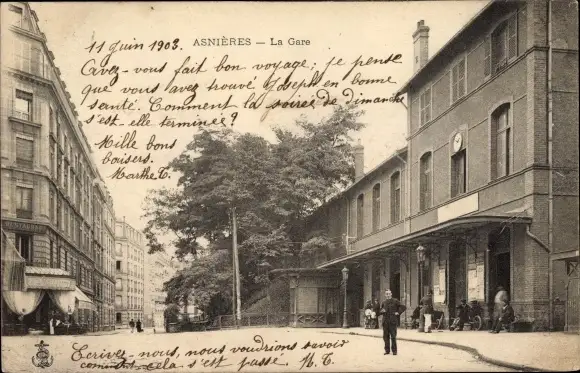 11 juin 1903.
ASNIÈRES — La Gare
Avez-vous fait bon voyage; je pense
que vous avez trouvé Joseph en bonne
santé. Comment la soirée de Dimanche
s'est-elle terminée?
Mille bons
baisers.
Marthe T.
Ecrivez-nous, nous voudrions savoir
comment cela s'est passé. M. T.